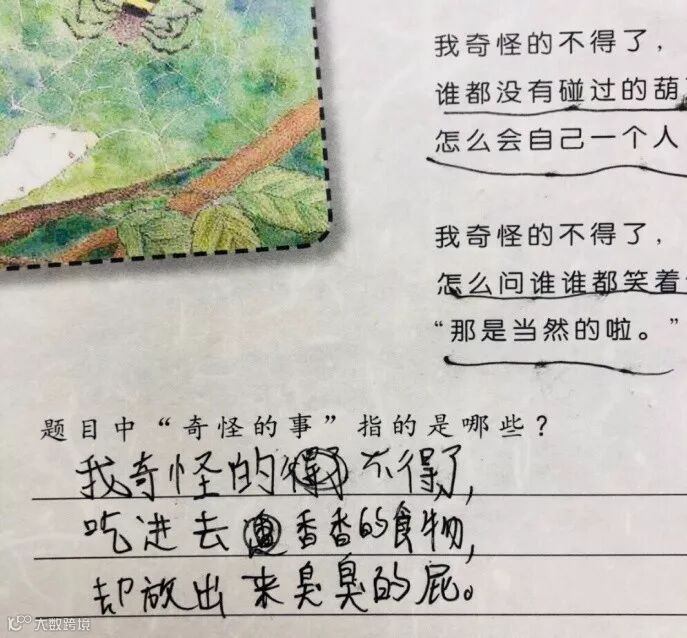 我奇怪的不得了，
谁都没有碰过的葫
怎么会自己一个人
我奇怪的不得了，
怎么问谁谁都笑着
“那是当然的啦。”
题目中“奇怪的事”指的是哪些？
我奇怪的不得了，
吃进去香香的食物，
却放出来臭臭的屁。
大数跨境